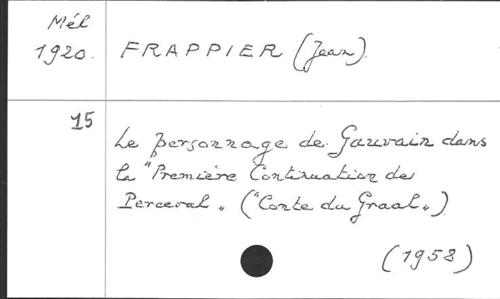 Mél
1920.
FRAPPIER (Jean).
15
Le personnage de Gauvain dans
la "Première Continuation de
Perceval" ("Conte du Graal")
(1958)